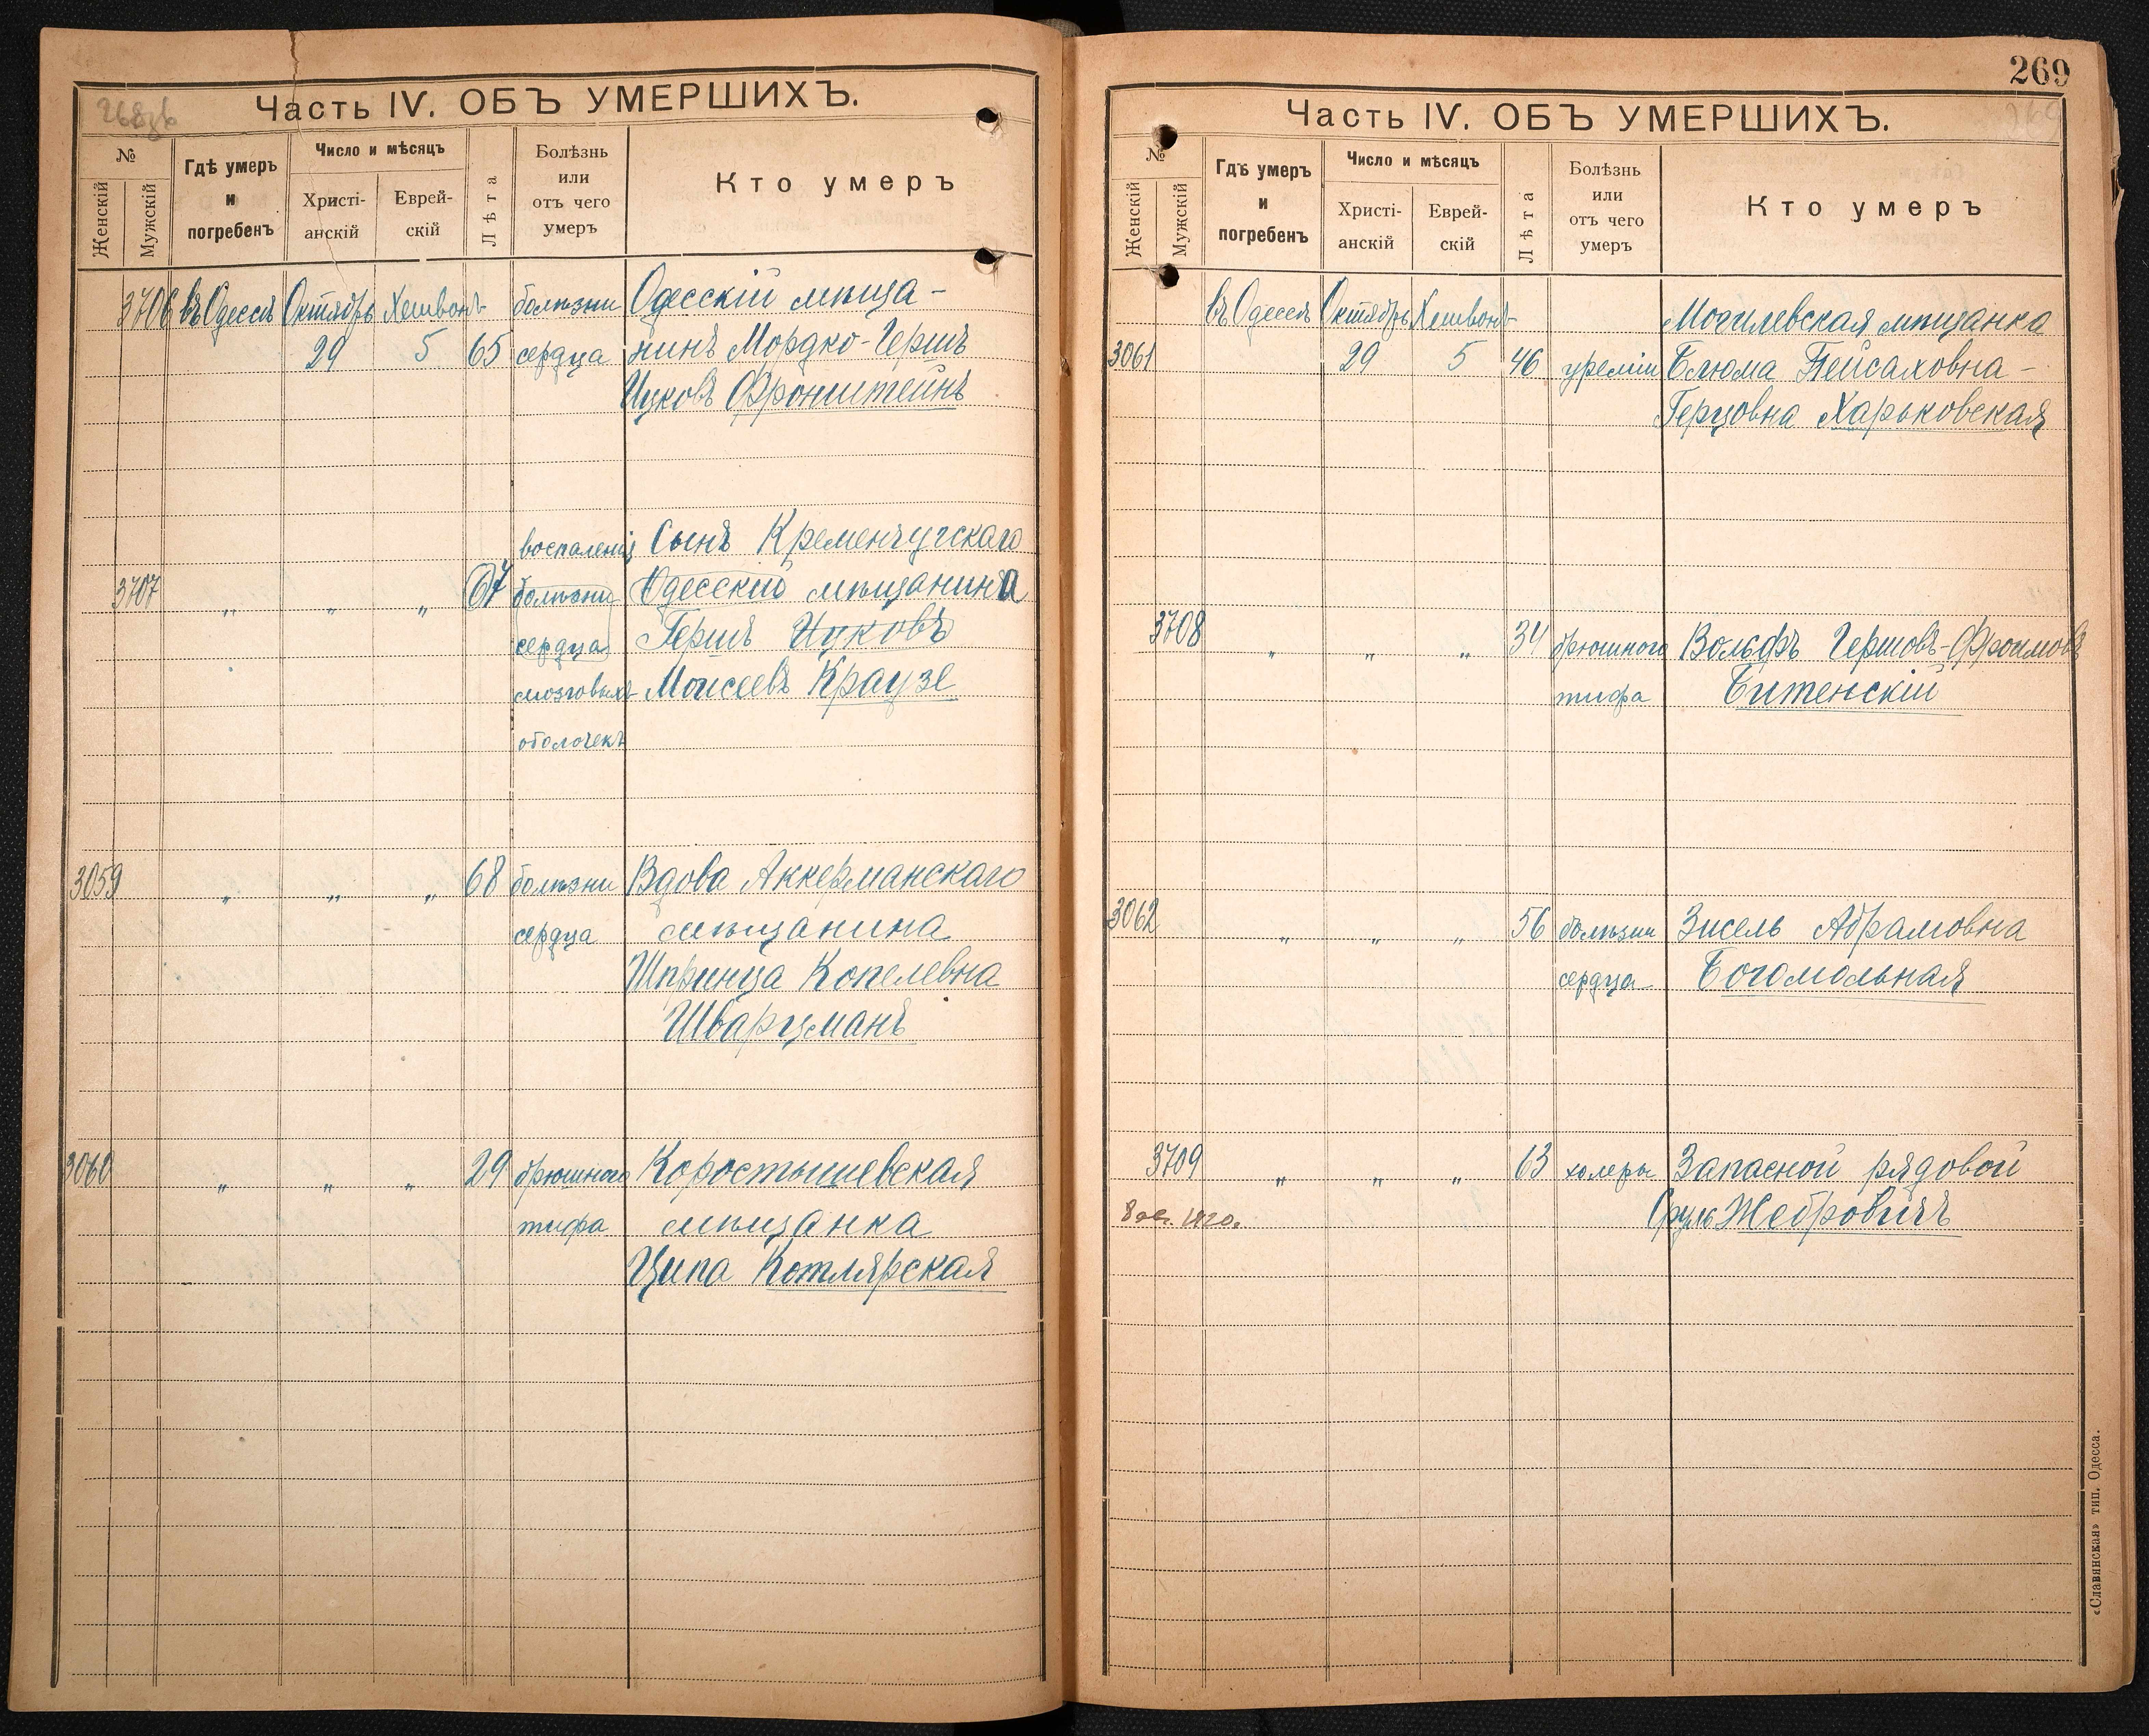 268зв
Часть IV. ОБЪ УМЕРШИХЪ.
№
Женскій
Мужскій
Гдѣ умеръ
и
погребенъ
Число и мѣсяцъ
Христі-
анскій
Еврей-
скій
Лѣта
Болѣзнь
или
отъ чего
умеръ
Кто умеръ
3706 въ Одессѣ Октябрь Хешвонъ болѣзни Одесскій мѣща-
29 5 65 сердца нинъ Мордко-Гершъ
Ицковъ Фронштейнъ
воспаленія Сынъ Кременчугскаго
3707 „ „ „ 67 болѣзни Одесскій мѣщанина
сердца Гершъ Ицковъ
мозговыхъ Моисеевъ Краузе
оболочекъ
3059 „ „ „ 68 болѣзни Вдова Аккерманскаго
сердца мѣщанина
Шпринца Копелевна
Шварцманъ
3060 „ „ „ 29 брюшного Коростышевская
тифа мѣщанка
Ципа Котлярская
269
269
Часть IV. ОБЪ УМЕРШИХЪ.
№
Женскій
Мужскій
Гдѣ умеръ
и
погребенъ
Число и мѣсяцъ
Христі-
анскій
Еврей-
скій
Лѣта
Болѣзнь
или
отъ чего
умеръ
Кто умеръ
въ Одессѣ Октябрь Хешвонъ Могилевская мѣщанка
3061 29 5 46 уреміи Блюма Пейсаховна-
Герцовна Харьковская
3708 „ „ „ 34 брюшного Вольфъ Гершовъ-Фроимовъ
тифа Битенскій
3062 „ „ „ 56 болѣзни Зисель Абрамовна
сердца Богомольная
3709 „ „ „ 63 холеры Запасной рядовой
1920. Сруль Жебровичъ
«Славянская» тип. Одесса.